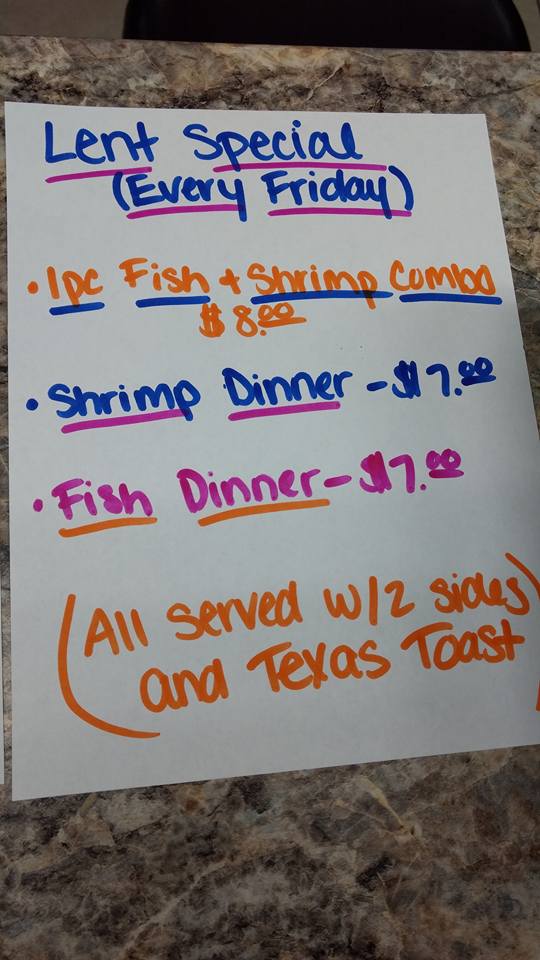 Lent Special
(Every Friday)
• 1pc Fish + Shrimp Combo
$8.00
• Shrimp Dinner - $7.00
• Fish Dinner - $7.00
(All served w/2 sides)
and Texas Toast